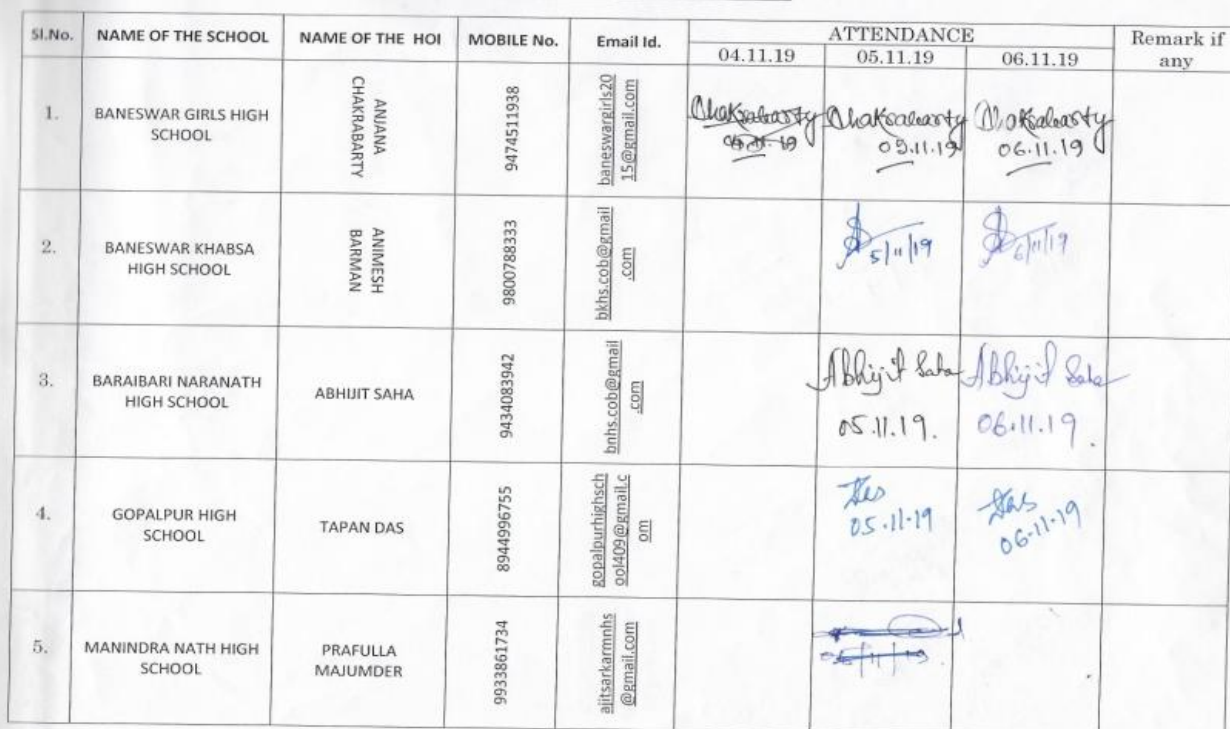 Sl.No.
NAME OF THE SCHOOL
NAME OF THE HOI
MOBILE No.
Email Id.
ATTENDANCE
04.11.19
05.11.19
06.11.19
Remark if
any
1.
BANESWAR GIRLS HIGH
SCHOOL
ANJANA
CHAKRABARTY
9474511938
baneswargirls20
15@gmail.com
Chakrabarty
Chakrabarty
05.11.19
Chakrabarty
06.11.19
2.
BANESWAR KHABSA
HIGH SCHOOL
ANIMESH
BARMAN
9800788333
bkhs.cob@gmail
.com
5/11/19
6/11/19
3.
BARAIBARI NARANATH
HIGH SCHOOL
ABHIJIT SAHA
9434083942
bnhs.cob@gmail
.com
Abhijit Saha
05.11.19.
Abhijit Saha
06.11.19.
4.
GOPALPUR HIGH
SCHOOL
TAPAN DAS
8944996755
gopalpurhighsch
ool409@gmail.c
om
Das
05.11.19
Das
06.11.19
5.
MANINDRA NATH HIGH
SCHOOL
PRAFULLA
MAJUMDER
9933861734
ajitsarkarmnhs
@gmail.com